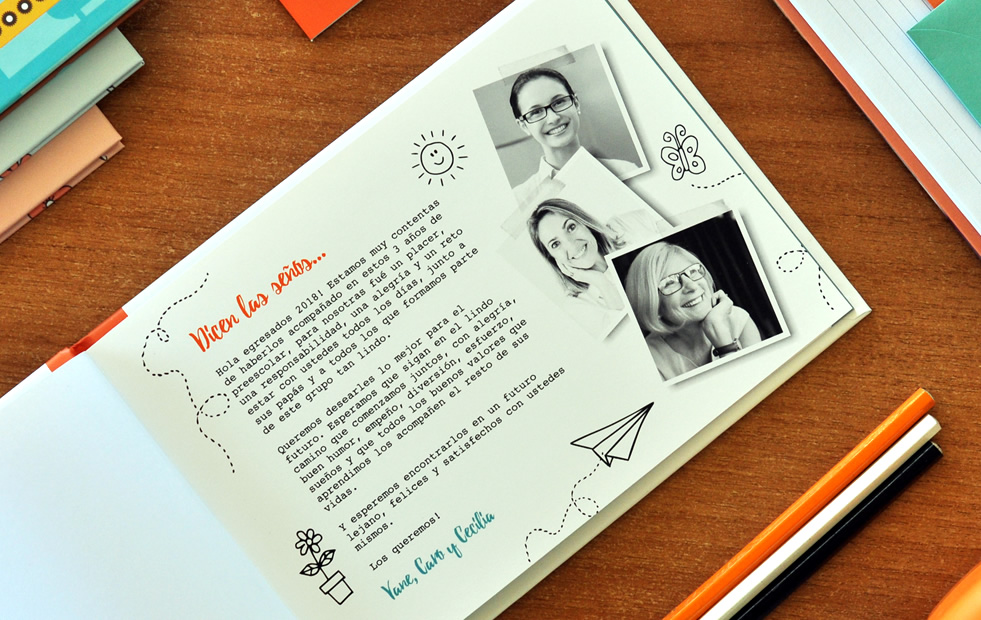 Dicen las seños...
Hola egresados 2018! Estamos muy contentas
de haberlos acompañado en estos 3 años de
preescolar, para nosotras fué un placer,
una responsabilidad, una alegría y un reto
estar con ustedes todos los días, junto a
sus papás y a todos los que formamos parte
de este grupo tan lindo.
Queremos desearles lo mejor para el
futuro. Esperamos que sigan en el lindo
camino que comenzamos juntos, con alegría,
buen humor, empeño, diversión, esfuerzo,
sueños y que todos los buenos valores que
aprendimos los acompañen el resto de sus
vidas.
Y esperemos encontrarlos en un futuro
lejano, felices y satisfechos con ustedes
mismos.
Los queremos!
Vane, Caro y Cecilia